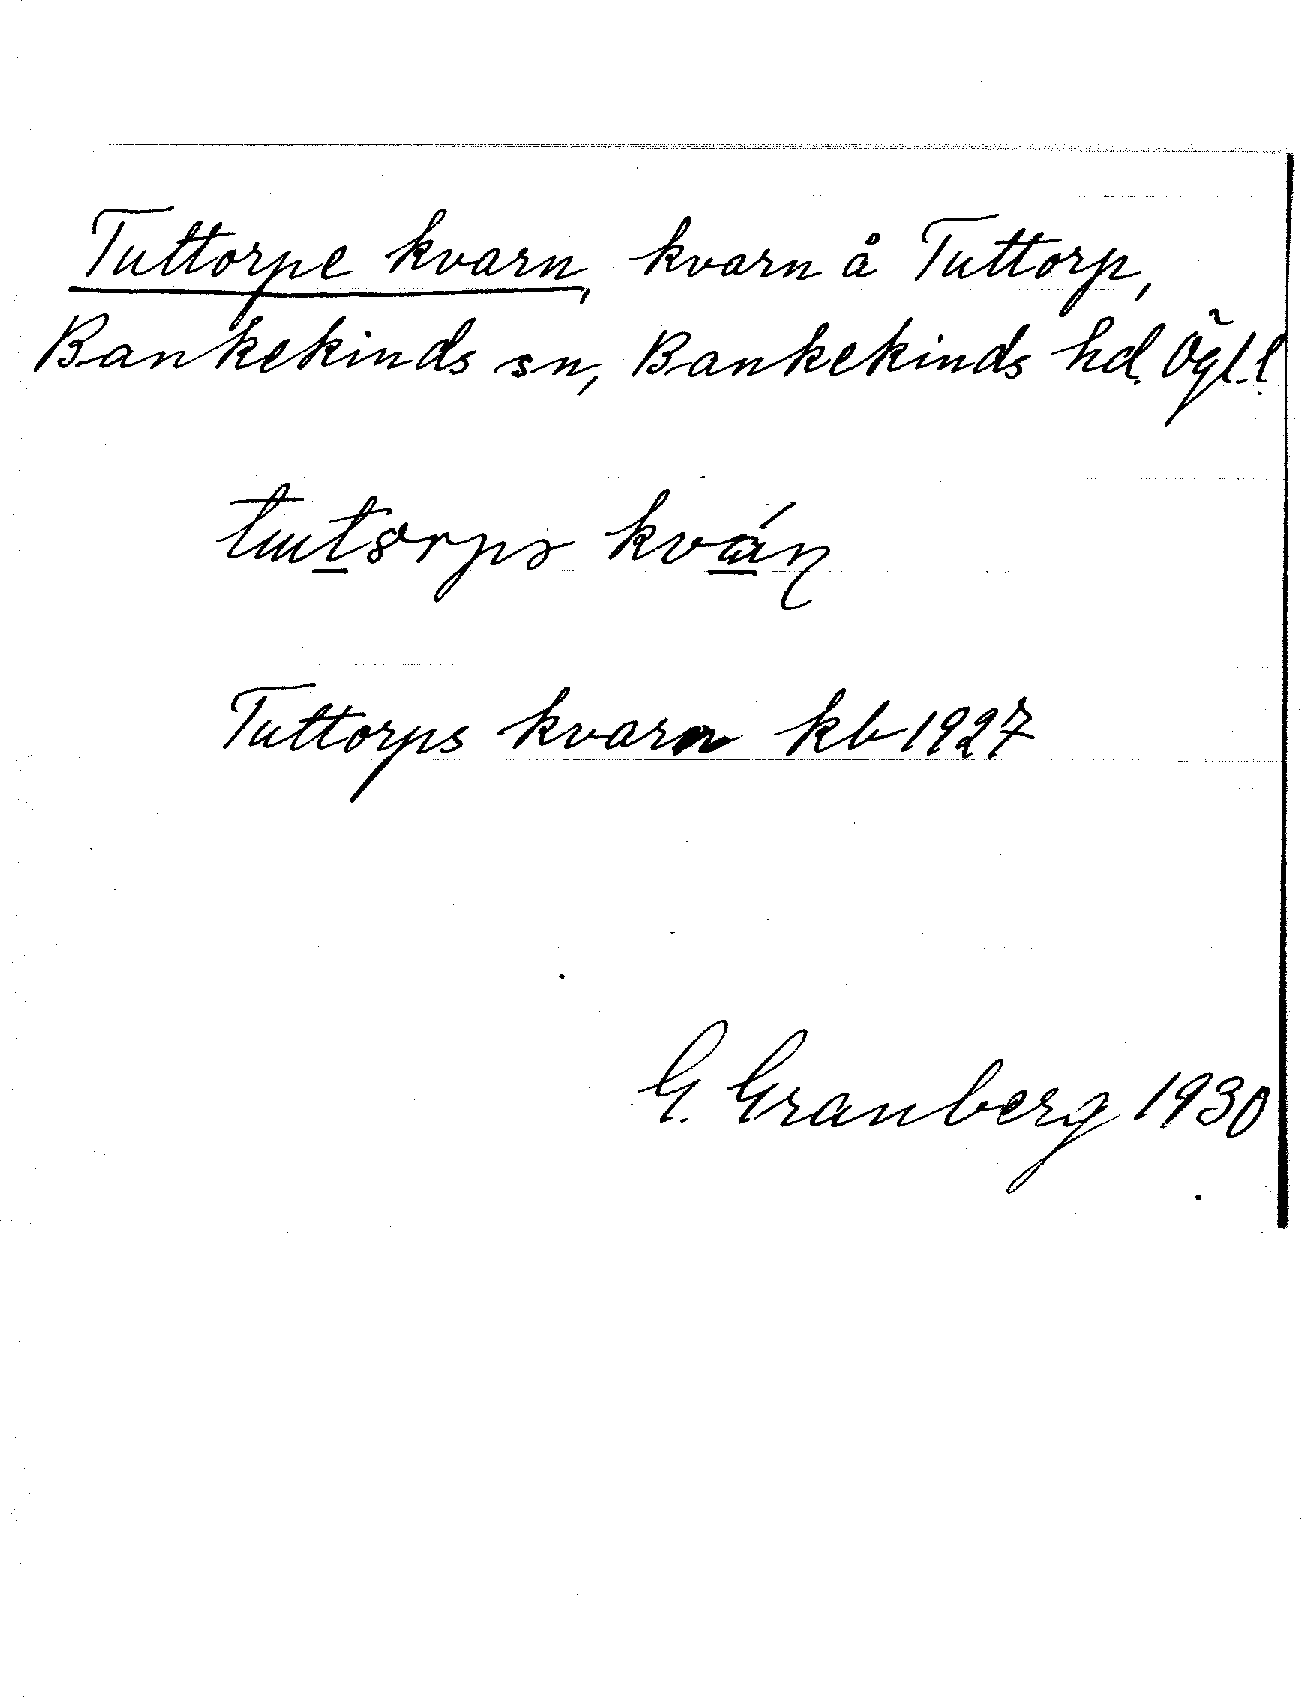 Tuttorpe kvarn, kvarn å Tuttorp,
Bankekinds sn, Bankekinds hd. Ögl.l.
kván
Tuttorps kvarn kb 1927
G. Granberg 1930